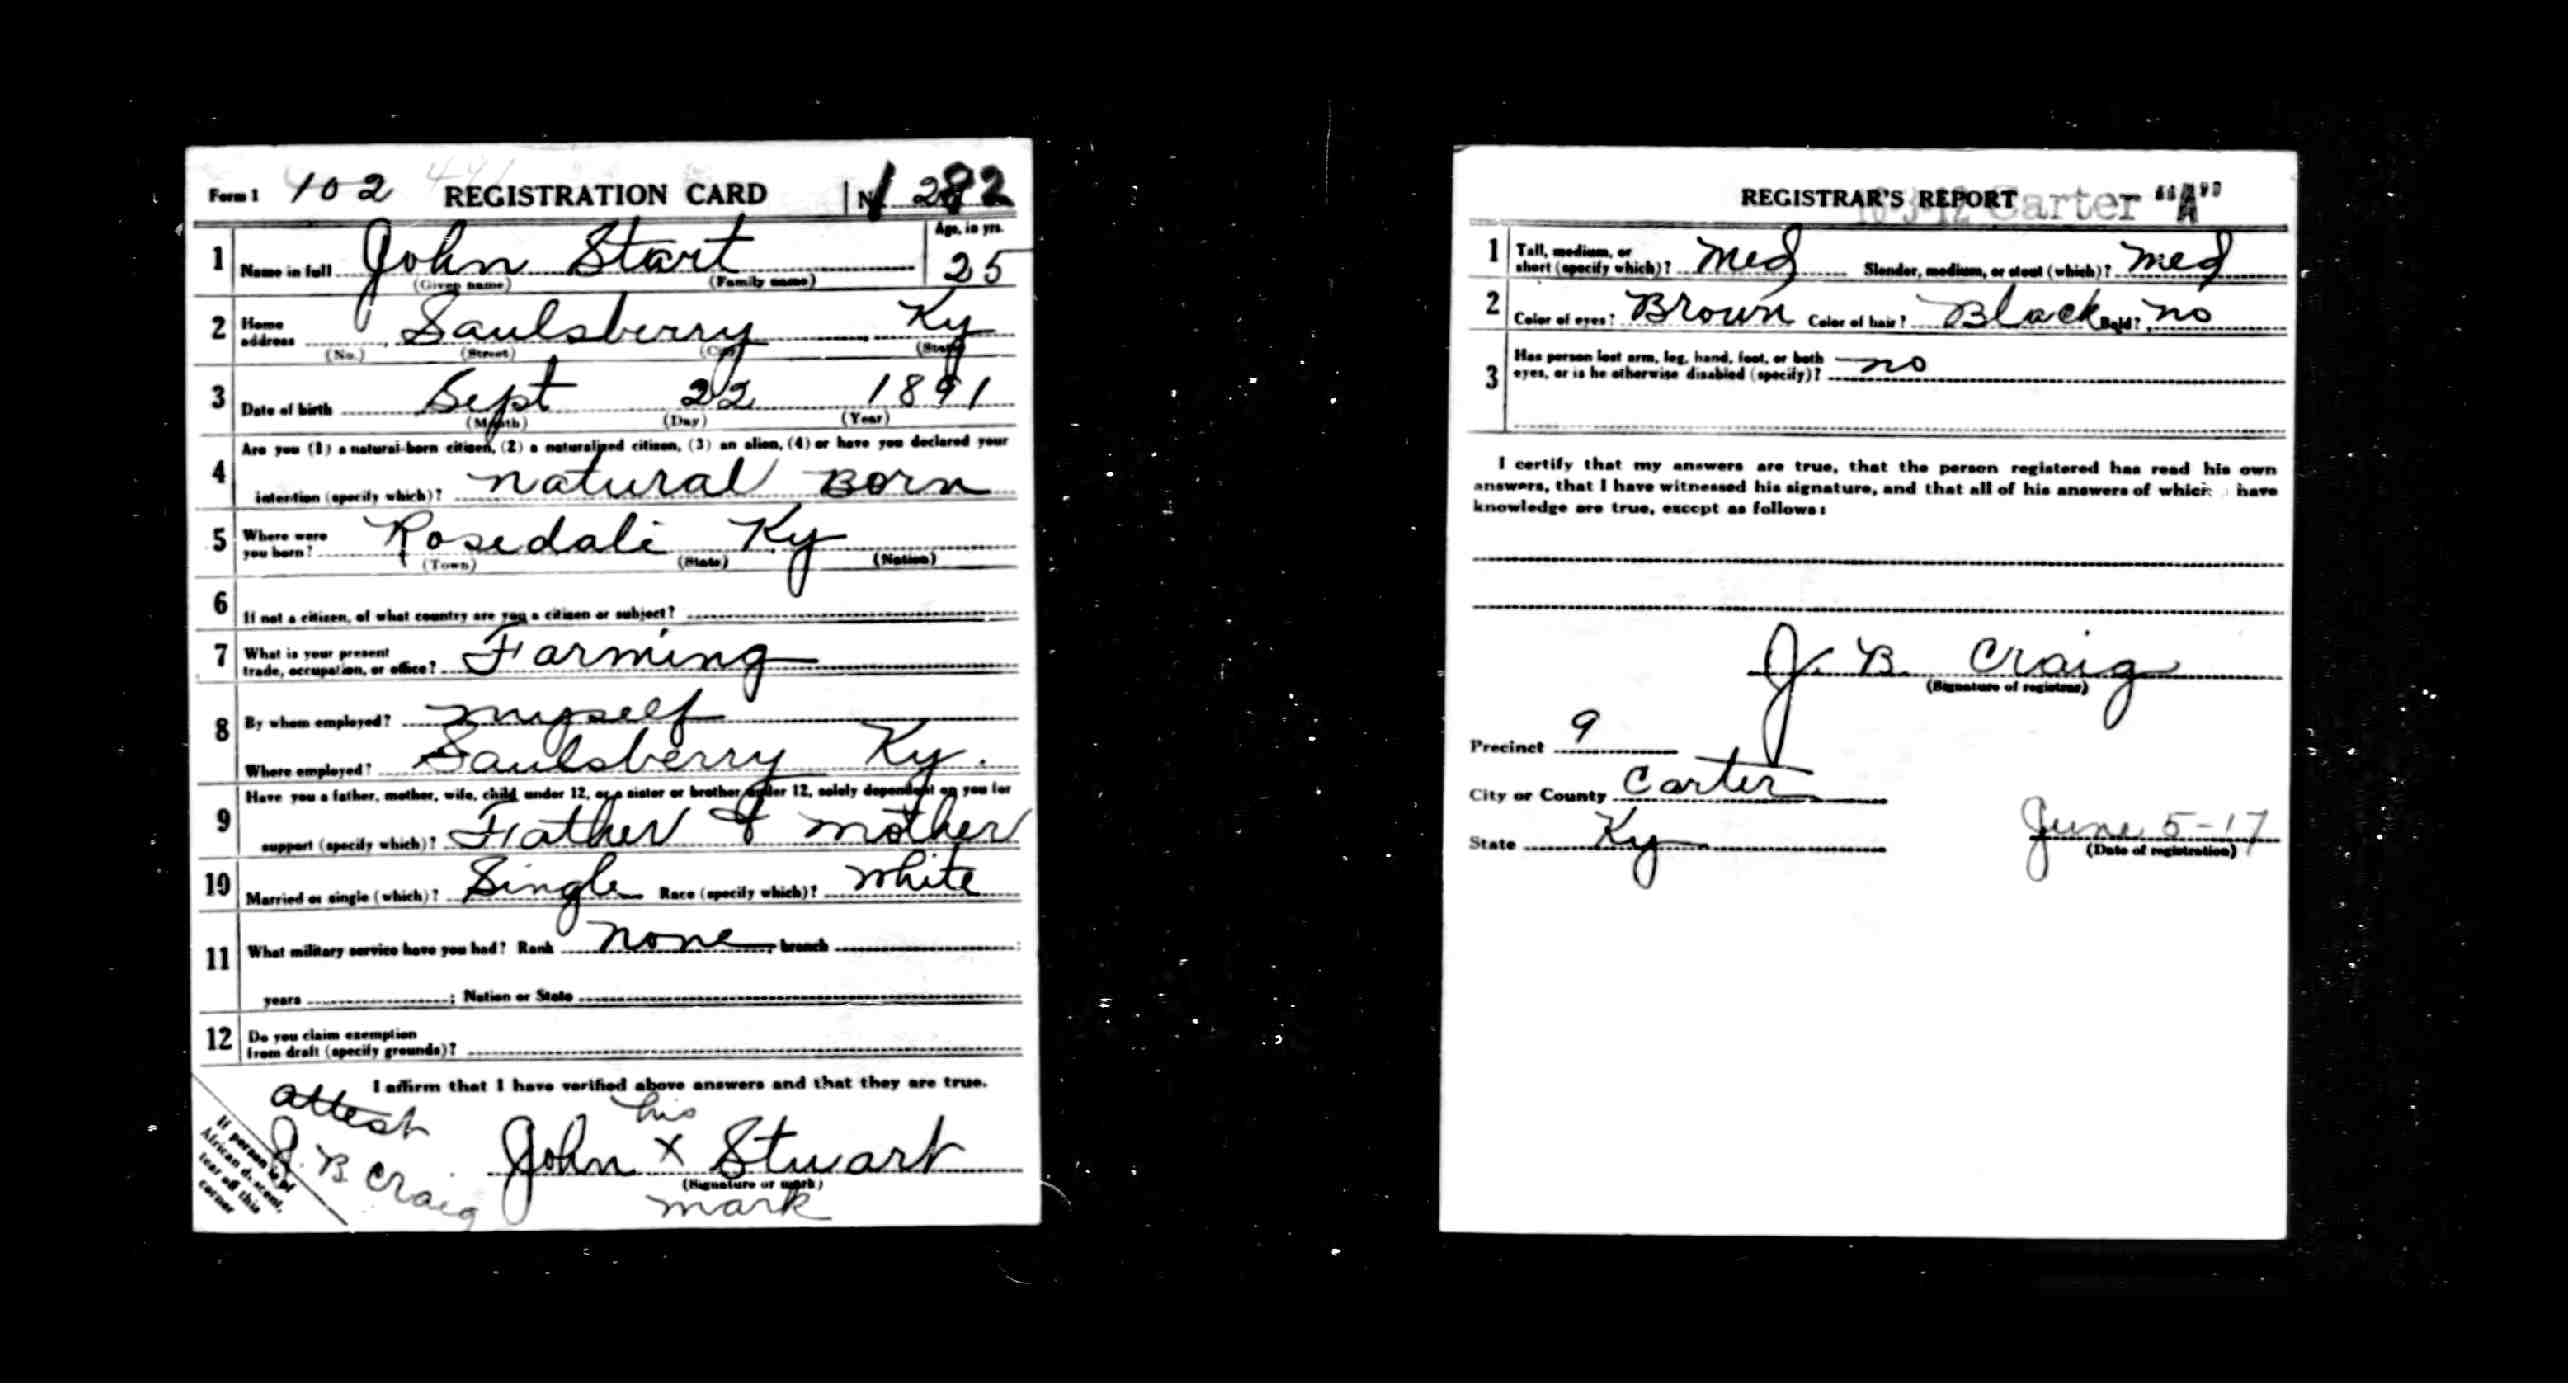 Form 1 102 REGISTRATION CARD No 282
1 Name in full John Start Age, in yrs. 25
(Given name) (Family name)
2 Home address Saulsberry, Ky
(No.) (Street) (City) (State)
3 Date of birth Sept 22 1891
(Month) (Day) (Year)
4 Are you (1) a natural-born citizen, (2) a naturalized citizen, (3) an alien, (4) or have you declared your
intention (specify which)? natural Born
5 Where were you born? Rosedali Ky
(Town) (State) (Nation)
6 If not a citizen, of what country are you a citizen or subject?
7 What is your present
trade, occupation, or office? Farming
8 By whom employed? myself
Where employed? Saulsberry Ky.
9 Have you a father, mother, wife, child under 12, or a sister or brother under 12, solely dependent on you for
support (specify which)? Father & mother
10 Married or single (which)? Single Race (specify which)? White
11 What military service have you had? Rank none; branch
years ; Nation or State
12 Do you claim exemption
from draft (specify grounds)?
I affirm that I have verified above answers and that they are true.
attest
J. B Craig
his
John X Stuart
(Signature or mark)
mark
If person is of
African descent,
tear off this
corner
REGISTRAR'S REPORT Carter "A"
1 Tall, medium, or
short (specify which)? Med Slender, medium, or stout (which)? Med
2 Color of eyes? Brown Color of hair? Black Bald? no
3 Has person lost arm, leg, hand, foot, or both
eyes, or is he otherwise disabled (specify)? no
I certify that my answers are true, that the person registered has read his own
answers, that I have witnessed his signature, and that all of his answers of which have
knowledge are true, except as follows:
J. B. Craig
(Signature of registrar)
Precinct 9
City or County Carter
State Ky
June 5-17
(Date of registration)